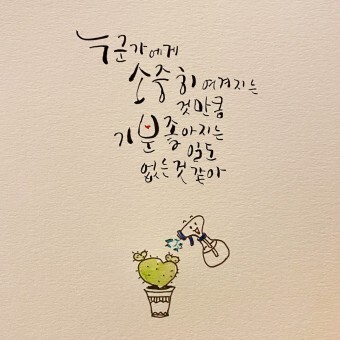 누군가에게
소중히 여겨지는
것만큼
기분 좋아지는
일도
없는것 같아